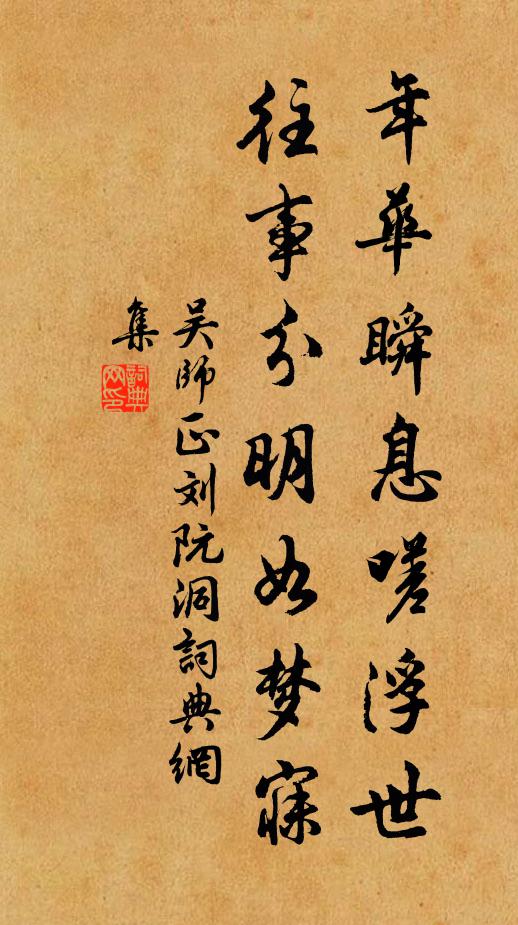 年華瞬息嗟浮世
往事分明如梦寐
吴師正刘阮洞詞典網
集
詞典
网印